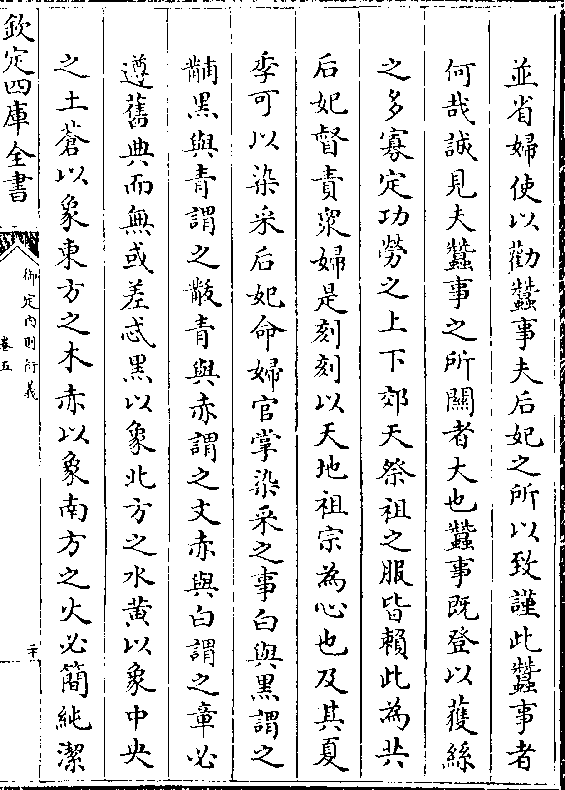 並省婦使以勸蠶事夫后妃之所以致謹此蠶事者
何哉誠見夫蠶事之所關者大也蠶事既登以蒦絲
之多寡定功勞之上下郊天祭祖之服皆賴此為共
后妃督責衆婦是刻刻以天地祖宗為心也及其夏
季可以染采后妃命婦官掌染采之事白與黒謂之
黼黒與青謂之黻青與赤謂之文赤與白謂之章必
遵舊典而無或差忒黒以象北方之水黄以象中央
之土蒼以象東方之木赤以象南方之火必簡純潔
欽定四庫全書
御定内則衍義
卷五
二十